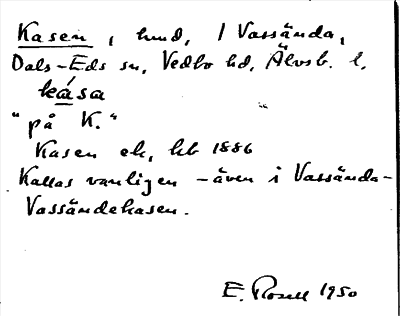 Kasen, hmd, I Vassända,
Dals-Eds sn, Vedbo hd, Älvsb. l.
kása
"på K."
Kasen ek, kb 1886
Kallas vanligen - även i Vassända -
Vassändekasen.
E. Rosell 1950